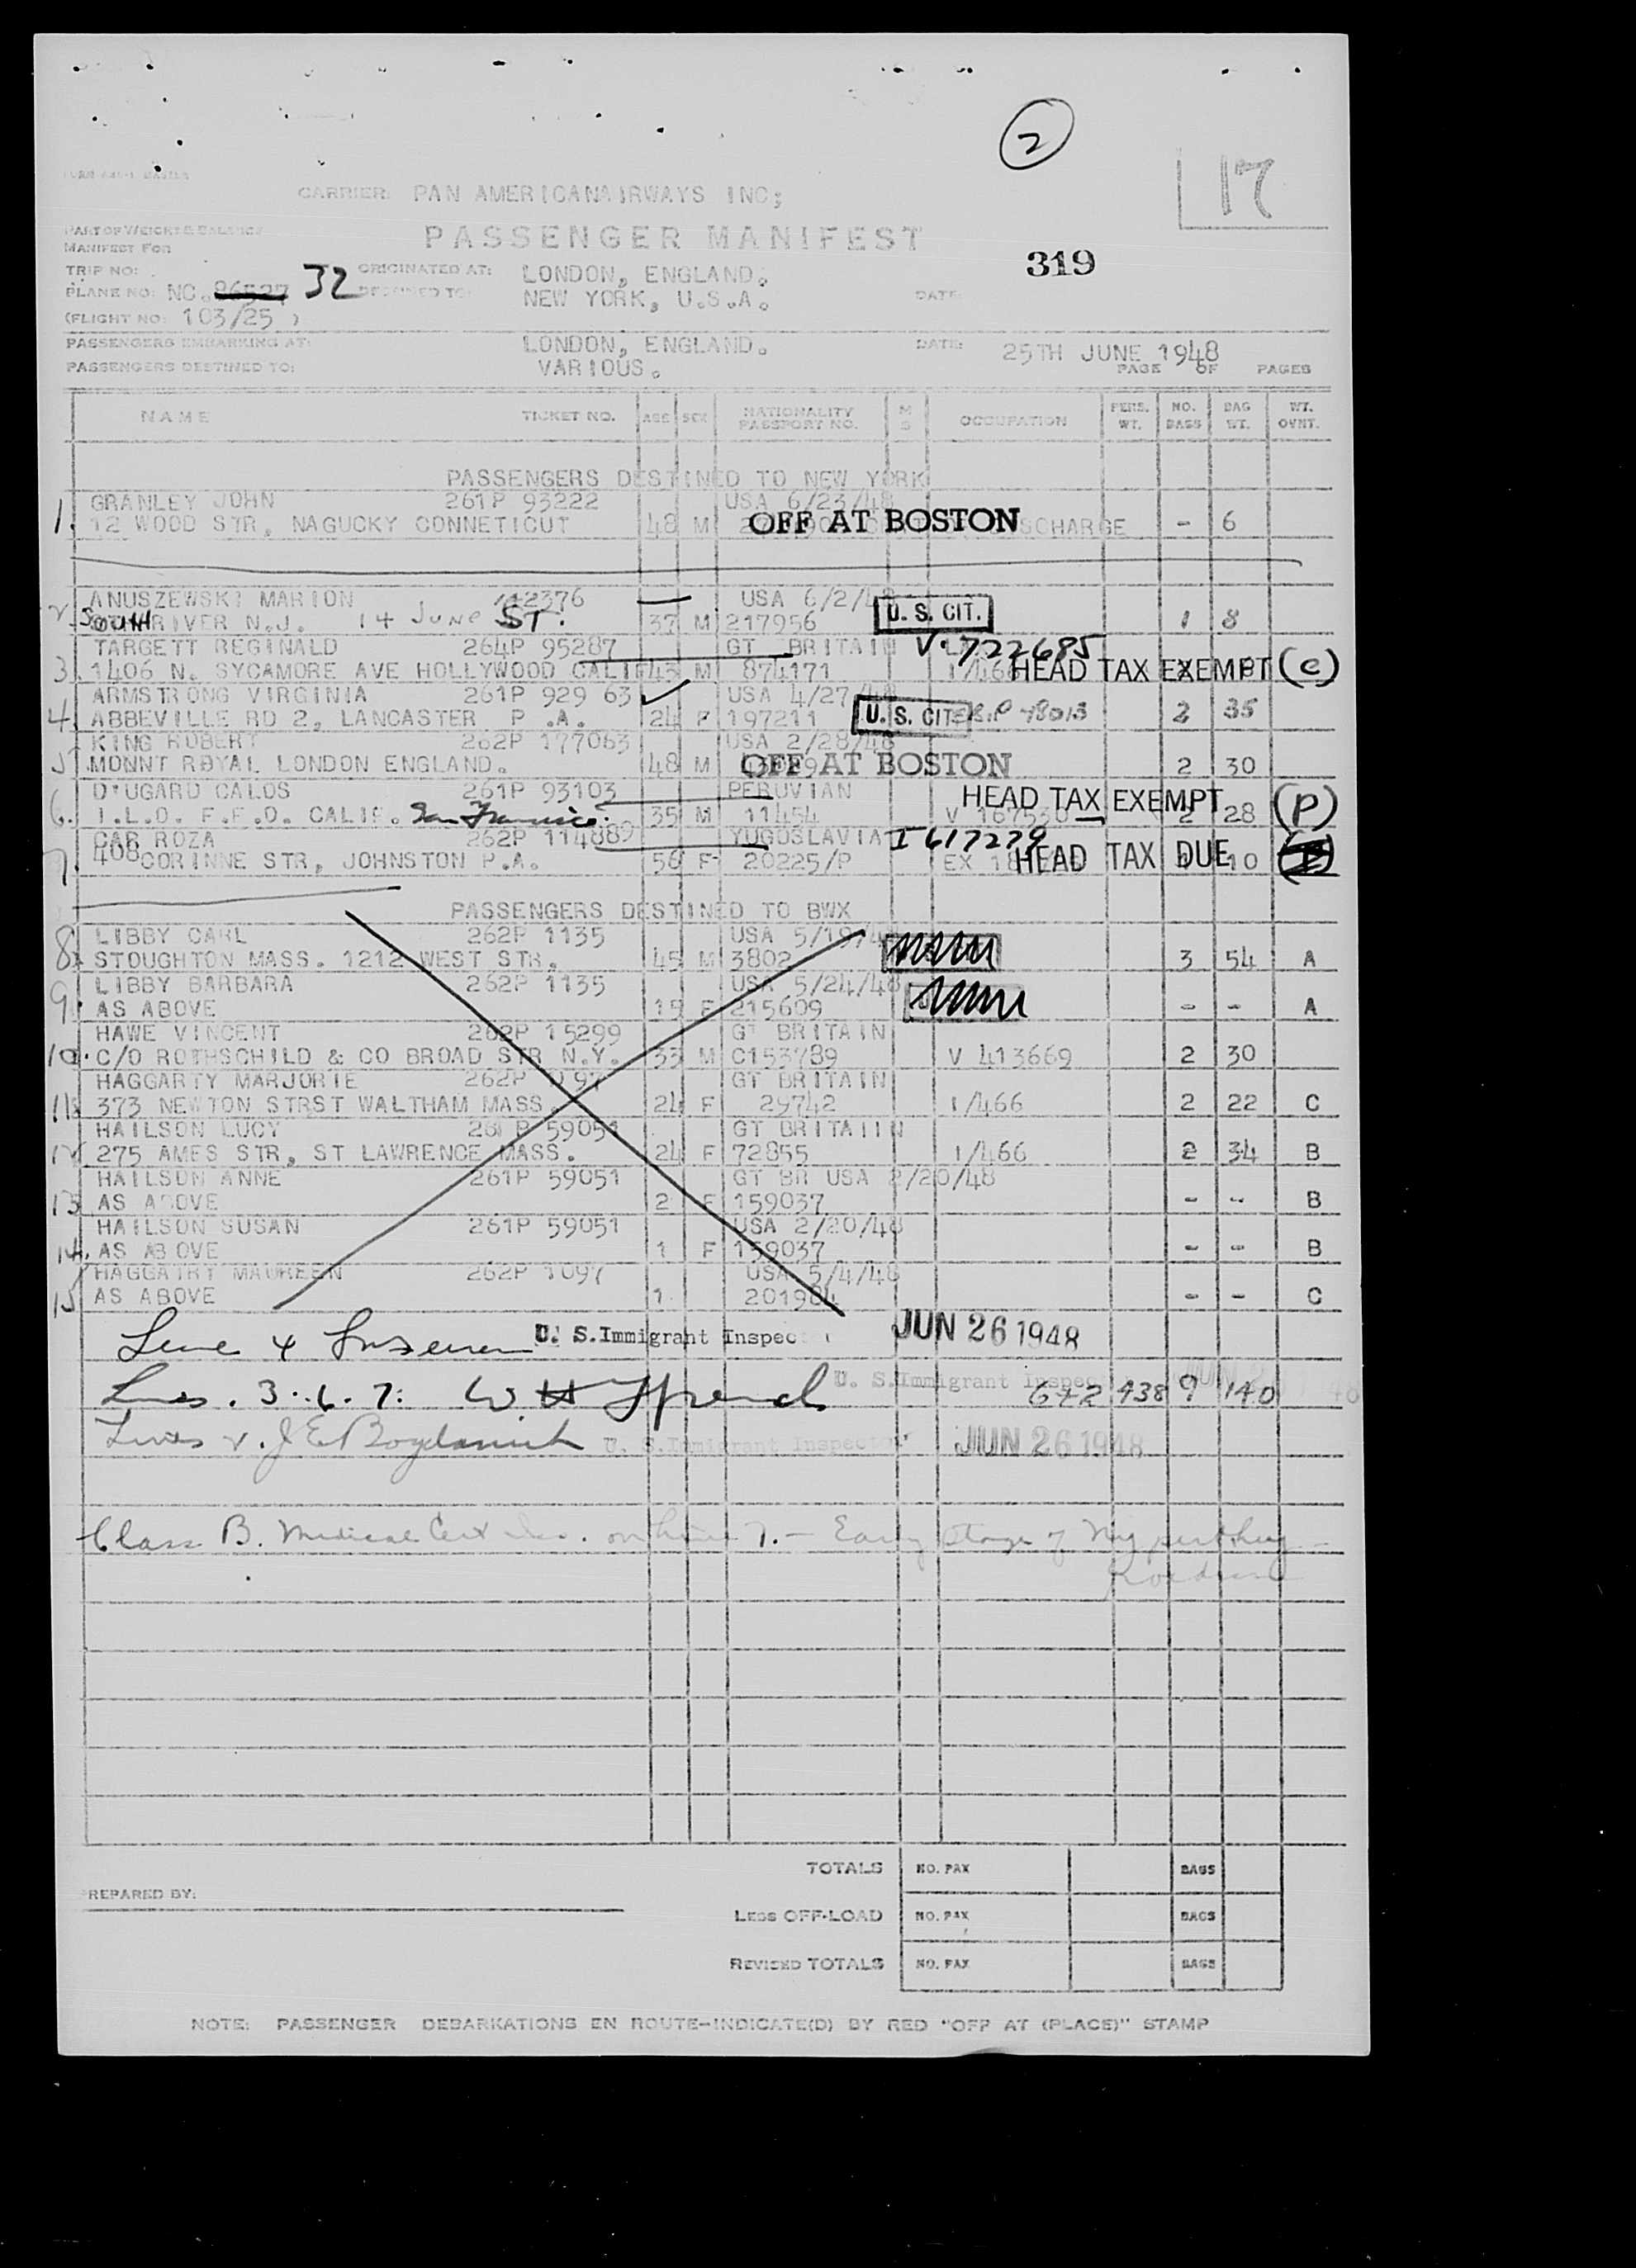 2
17
CARRIER: PAN AMERICANAIRWAYS INC;
PART OF WEIGHT & BALANCE
MANIFEST FOR
PASSENGER MANIFEST
319
TRIP NO:
ORIGINATED AT: LONDON, ENGLAND.
PLANE NO: NC.86527 32 DESTINED TO: NEW YORK, U.S.A. DATE:
(FLIGHT NO: 103/25 )
PASSENGERS EMBARKING AT: LONDON, ENGLAND. DATE: 25TH JUNE 1948
PASSENGERS DESTINED TO: VARIOUS. PAGE OF PAGES
NAME TICKET NO. AGE SEX NATIONALITY PASSPORT NO. M S OCCUPATION PERS. WT. NO. BAGS BAG WT. WT. OVNT.
PASSENGERS DESTINED TO NEW YORK
GRANLEY JOHN 261P 93222 USA 6/23/48
1. 12 WOOD STR, NAGUCKY CONNETICUT 48 M OFF AT BOSTON SCHARGE - 6
ANUSZEWSKI MARION 142376 USA 6/2/48
2. SOUTH RIVER N.J. 14 June ST. 37 M 217956 U. S. CIT. 1 8
TARGETT REGINALD 264P 95287 GT BRITAIN V. 722685
3. 1406 N. SYCAMORE AVE HOLLYWOOD CALIF 43 M 874171 1/466 HEAD TAX EXEMPT (e)
ARMSTRONG VIRGINIA 261P 929 63 USA 4/27/48
4. ABBEVILLE RD 2, LANCASTER P .A. 24 F 197211 U. S. CIT. 2 35
KING ROBERT 262P 177063 USA 2/28/48
5 MONNT ROYAL LONDON ENGLAND. 48 M OFF AT BOSTON 2 30
D'UGARD CALOS 261P 93103 PERUVIAN HEAD TAX EXEMPT (P)
6. I.L.O. F.F.O. CALIF. San Francisco. 35 M 11454 V 167530 2 28
CAR ROZA 262P 114889 YUGOSLAVIA I 617279
7. 408 CORINNE STR, JOHNSTON P.A. 56 F 20225/P EX 18 HEAD TAX DUE 10
PASSENGERS DESTINED TO BWX
LIBBY CARL 262P 1135 USA 5/19/48
8 STOUGHTON MASS. 1212 WEST STR. 45 M 3802 3 54 A
LIBBY BARBARA 262P 1135 USA 5/24/48
9. AS ABOVE 15 F 215609 - - A
HAWE VINCENT 262P 15299 GT BRITAIN
10. C/O ROTHSCHILD & CO BROAD STR N.Y. 33 M C153789 V 413669 2 30
HAGGARTY MARJORIE 262P 1097 GT BRITAIN
11 373 NEWTON STRST WALTHAM MASS. 24 F 29742 1/466 2 22 C
HAILSON LUCY 261P 59051 GT BRITAIIN
12 275 AMES STR, ST LAWRENCE MASS. 24 F 72855 1/466 2 34 B
HAILSON ANNE 261P 59051 GT BR USA 2/20/48
13 AS ABOVE 2 F 159037 - - B
HAILSON SUSAN 261P 59051 USA 2/20/48
14. AS ABOVE 1 F 159037 - - B
HAGGAIRT MAUREEN 262P 1097 USA 5/4/48
15 AS ABOVE 1 201984 - - C
Line 4 U. S. Immigrant Inspec JUN 26 1948
Lines. 3. 6. 7: W. H. U. S. Immigrant Inspec 6+2 938 9 140
Lines 2. J E Bogdanich U. S. Immigrant Inspector JUN 26 1948
Class B. Medical Cert on line 7. - Early stage of
TOTALS NO. PAX BAGS
PREPARED BY:
LESS OFF-LOAD NO. PAX BAGS
REVISED TOTALS NO. PAX BAGS
NOTE: PASSENGER DEBARKATIONS EN ROUTE-INDICATE(D) BY RED "OFF AT (PLACE)" STAMP